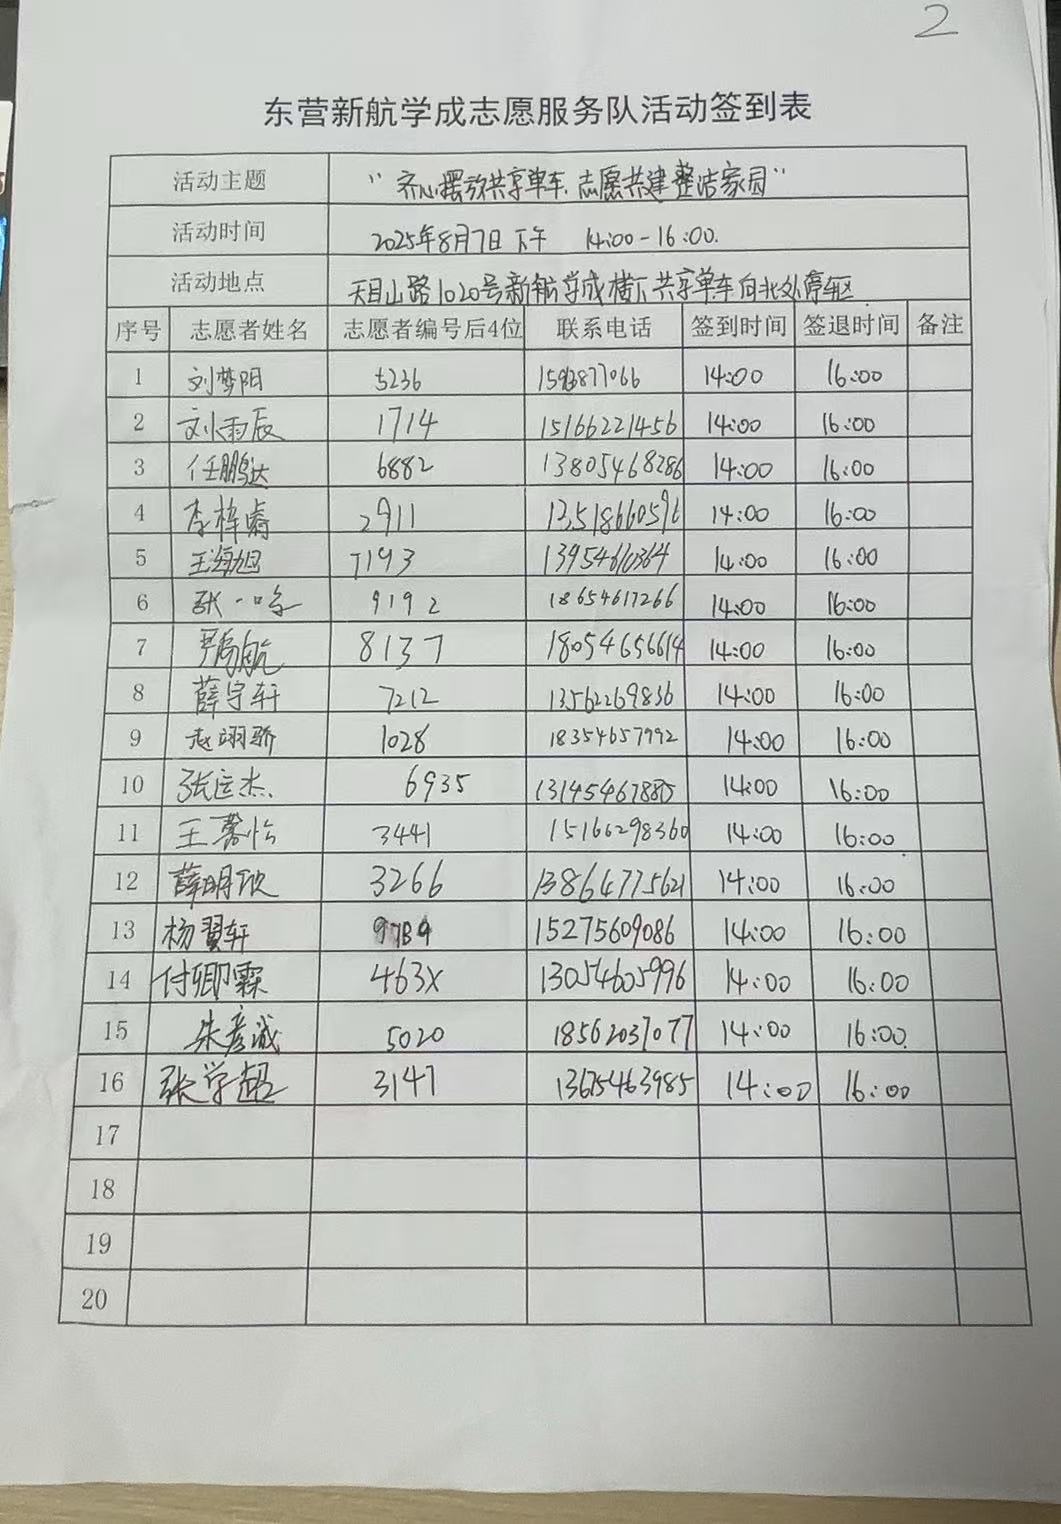 2
东营新航学成志愿服务队活动签到表
活动主题 "齐心摆放共享单车,志愿共建整洁家园"
活动时间 2025年8月7日下午 14:00-16:00.
活动地点 天目山路1020号新航学成楼下共享单车向北处停车区
序号 志愿者姓名 志愿者编号后4位 联系电话 签到时间 签退时间 备注
1 刘梦阳 5236 14:00 16:00
2 刘雨辰 1714 15166221456 14:00 16:00
3 任鹏达 6882 13805468286 14:00 16:00
4 李梓睿 2911 14:00 16:00
5 王海旭 7193 13954610364 14:00 16:00
6 张一鸣 9192 18654617266 14:00 16:00
7 航 8137 18054656614 14:00 16:00
8 薛宇轩 7212 13562269836 14:00 16:00
9 赵翊骄 1028 18354657992 14:00 16:00
10 张运杰. 6935 14:00 16:00
11 王馨怡 3441 15166298360 14:00 16:00
12 薛明欣 3266 13864775621 14:00 16:00
13 杨翼轩 15275609086 14:00 16:00
14 付卿霖 463X 13054605996 14:00 16:00
15 朱彦诚 5020 18562037077 14:00 16:00
16 张学超 3147 14:00 16:00
17
18
19
20